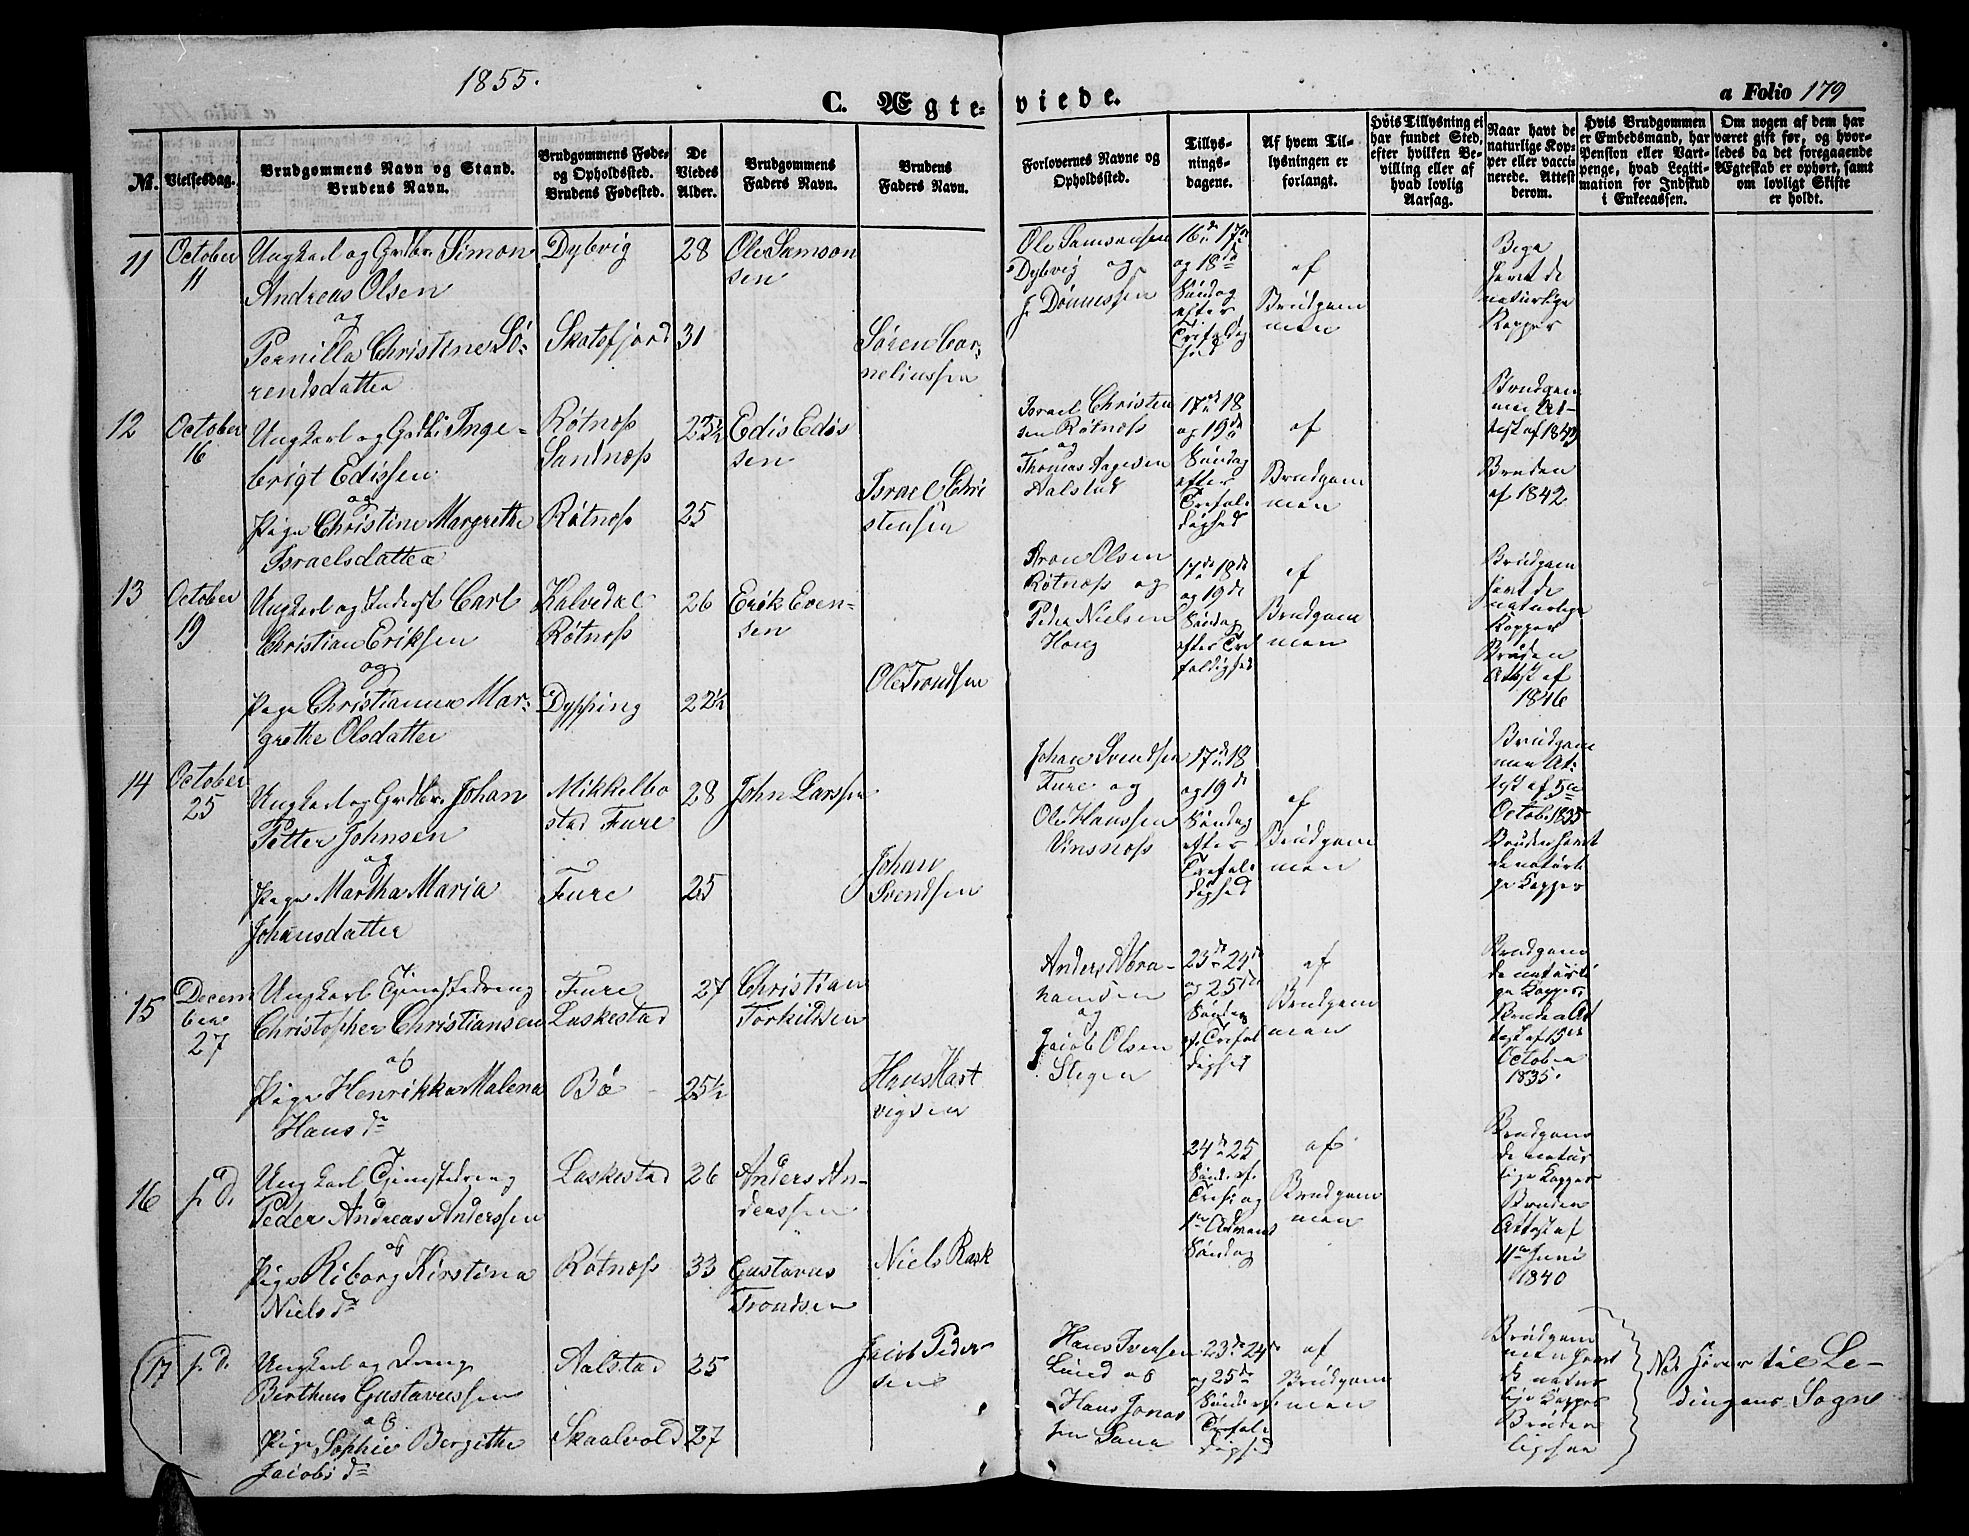 1855.
C. Ægteviede.
a Folio 179
№.
Vielsesdag.
Brudgommens Navn og Stand.
Brudens Navn.
Brudgommens Føde-
og Opholdssted.
Brudens Fødested.
De
Viedes
Alder.
Brudgommens
Faders Navn.
Brudens
Faders Navn.
Forlovernes Navne og
Opholdssted.
Tillys-
nings-
dagene.
Af hvem Til-
lysningen er
forlangt.
Hvis Tillysning ei
har fundet Sted,
efter hvilken Be-
villing eller af
hvad lovlig
Aarsag.
Naar havt de
naturlige Kop-
per eller vacci-
nerede. Attest
derom.
Hvis Brudgommen
er Embedsmand, har
Pension eller Vart-
penge, hvad Legiti-
mation for Indskud
i Enkecassen.
Om nogen af dem har
været gift før, og hvor-
ledes da det foregaaende
Ægteskab er ophørt, samt
om lovligt Skifte
er holdt.
11
October
11
Ungkarl og Grdbr. Simon
Andreas Olsen
og
Pernilla Christine Sö-
rensdatter
Dybvig
Skotsfjord
28
31
Ole Samson
sen
Sören Cor-
neliussen
Ole Samsonsen
Dybvig og
J. Dönnessen
16de 17de
og 18de
Söndag
efter
Trefoldig
hed
af
Brudgom
men
Bege
havt de
naturlige
Kopper
12
October
16
Ungkarl og Gdbr. Inge-
brigt Edissen
og
Pige Christine Margrethe
Israelsdatter
Rötnæs
Sandnæs
Rötnæs
25
Edis Edis
sen
Israel Chri
stensen
Israel Christen
sen Rötnæs
og
Thomas Aagesen
Aalstad
17de 18
og 19de
Söndag
efter
Trefol-
dighed
af
Brudgom
men
Brudgom
men At-
test af 1843
Bruden
af 1842
13
October
19
Ungkarl og Inderst Carl
Christian Eriksen
og
Pige Christianna Mar-
grethe Olsdatter
Kalvedal
Rötnæs
Dypping
26
22½
Erik Even-
sen
Ole Trondsen
Aron Olsen
Rötnæs og
Peder Nielsen
Houg
17de 18de
og 19de
Söndag
efter Tre
foldighed
af
Brudgom
men
Brudgom
havt de
naturlige
Kopper
Bruden
Attest af
1846
14
October
25
Ungkarl og Grdbr. Johan
Petter Johnsen
og
Pige Martha Maria
Johansdatter
Mikkelbo
stad Fure
Fure
28
25
John Larsen
Johan
Svendsen
Johan Svendsen
Fure og
Ole Hanssen
Vinsnæs
17de 18
og 19de
Söndag
efter
Trefol-
dighed
af
Brudgom
men
Brudgom
men At-
test af 5te
Octob. 1835
Bruden havt
de naturli
ge Kopper
15
Decem
ber
27
Ungkarl Tjenestedreng
Christopher Christiansen
og
Pige Henrikka Malena
Hansdr
Fure
Laskestad
Bö
27
25½
Christian
Torkildsen
Hans Hart
vigsen
Anders Abra-
hamsen
og
Jacob Olsen
Stegen
23de 24de
og 25de
Söndag
ef. Trefol
dighed
af
Brudgom
men
Brudgom
de naturli
ge Kopper.
Bruden At
test af 19de
October
1835.
16
s. D.
Ungkarl Tjenestedreng
Peder Andreas Anderssen
og
Pige Riborg Kirstina
Nielsdr
Laskestad
Rötnæs
26
33
Anders An-
derssen
Gustavus
Trondsen
Niels Rask
24de 25
Sönd. ef.
Tref. og
1ste Advents
Söndag
af
Brudgom
men
Brudgom
de natur
lige Kopper
Bruden
Attest af
11te Juni
1840
17
s. D.
Ungkarl og Dreng
Berthus Gustavussen
og
Pige Sophie Bergitha
Jacobsdr
Aalstad
Skaalvold
25
27
Jacob Peder
sen
Hans Iversen
Lund og
Hans Jonas
sen
23de 24de
og 25de
Sönd. ef.
Trefol-
dighed
af
Brudgom
men
Brudgom
men havt
de natur
lige Kopper
Bruden
ligesaa
NB. hörer til Lö-
dingens Sogn